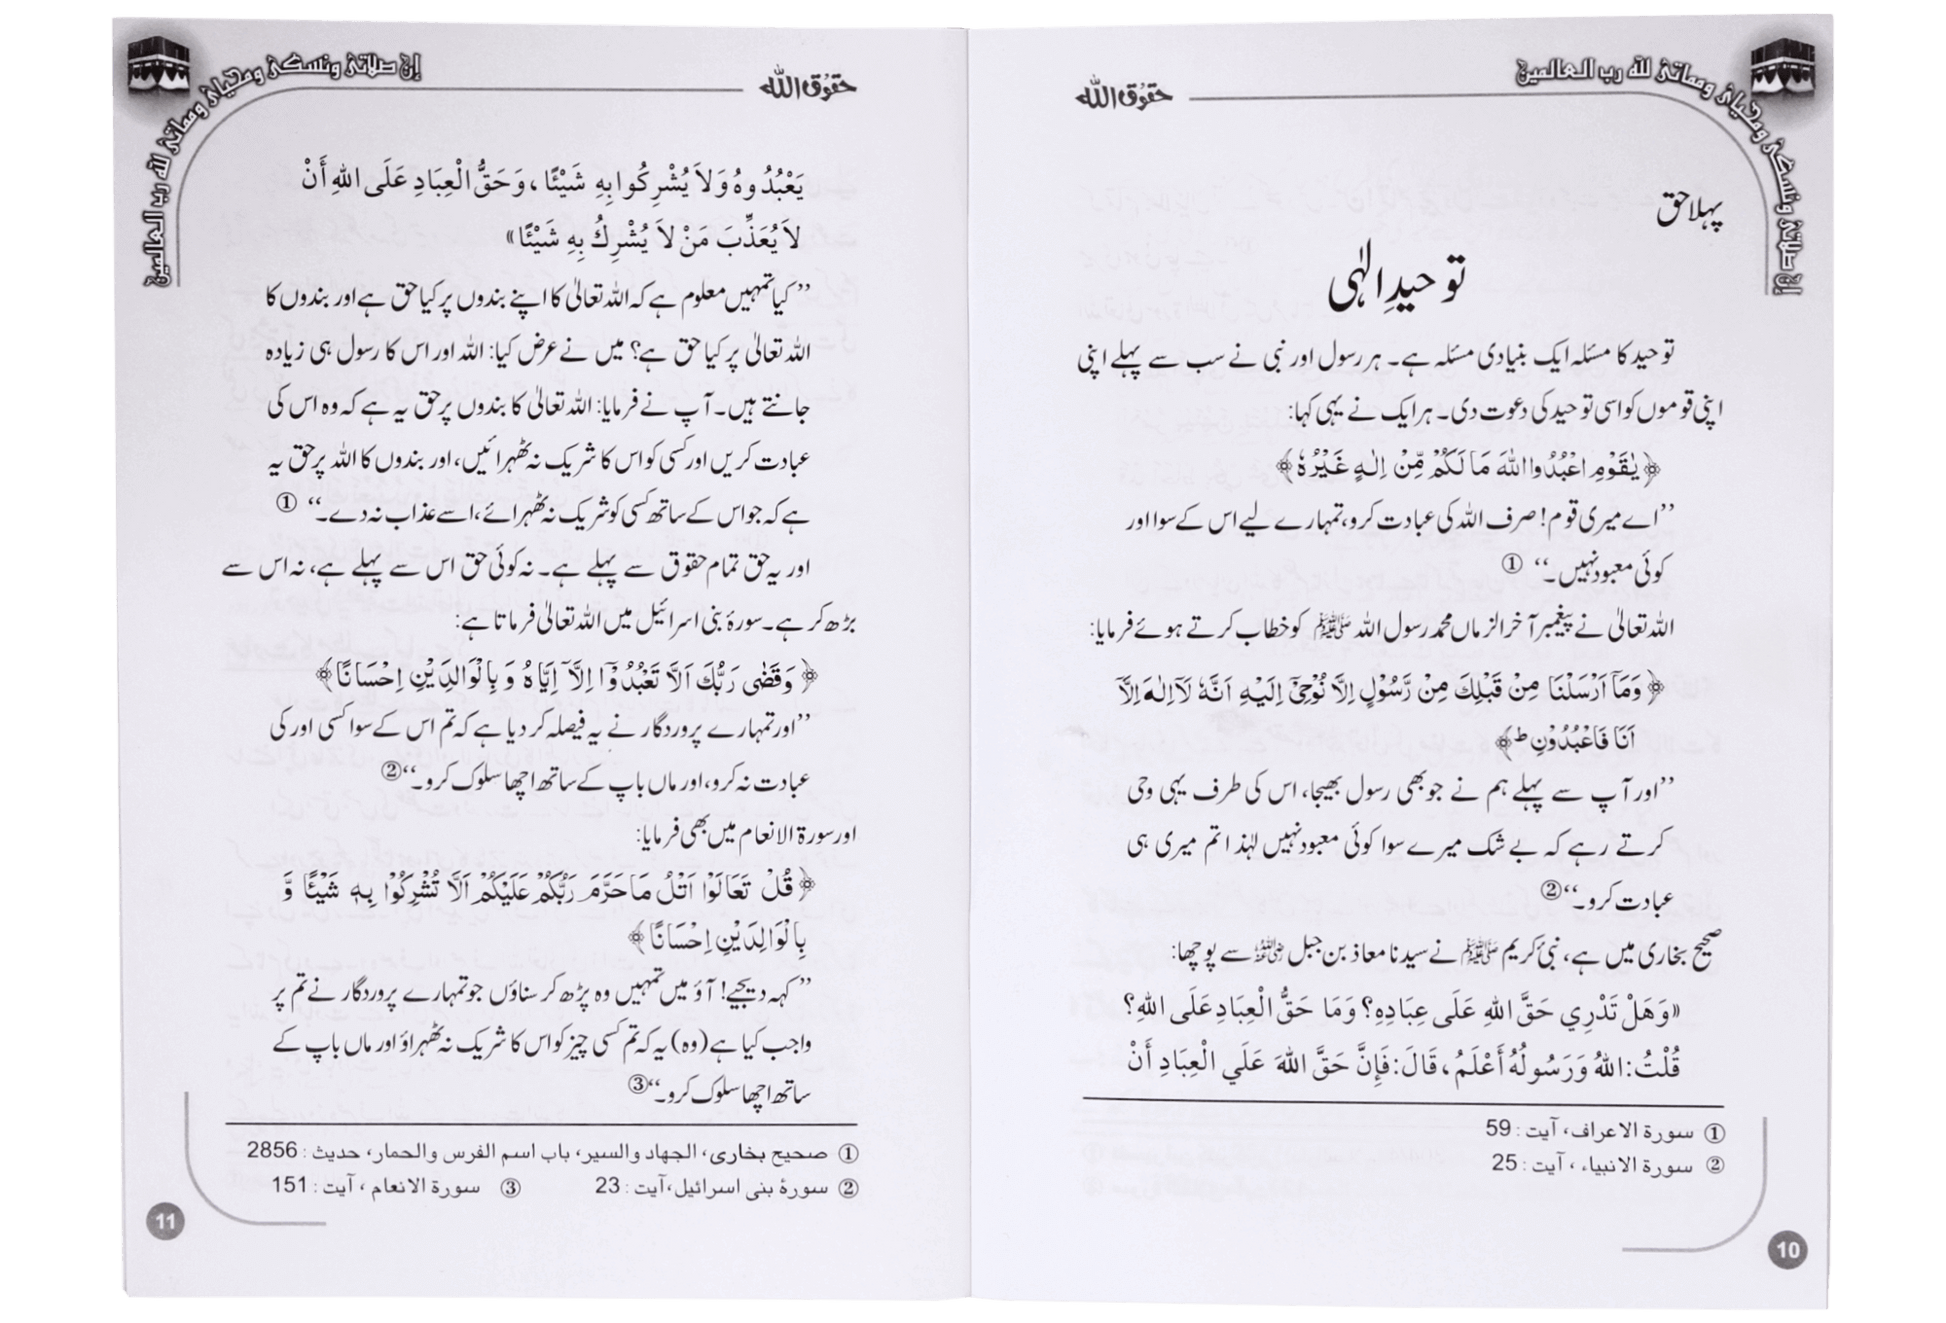 إن صلاتي ونسكي ومحياي ومماتي لله رب العالمين
حقوق اللہ
پہلا حق
توحیدِ الٰہی
توحید کا مسئلہ ایک بنیادی مسئلہ ہے۔ ہر رسول اور نبی نے سب سے پہلے اپنی
اپنی قوموں کو اسی توحید کی دعوت دی۔ ہر ایک نے یہی کہا:
﴿يٰقَوْمِ اعْبُدُوا اللهَ مَا لَكُمْ مِّنْ اِلٰهٍ غَيْرُهٗ﴾
’’اے میری قوم! صرف اللہ کی عبادت کرو، تمہارے لیے اس کے سوا اور
کوئی معبود نہیں۔‘‘ ①
اللہ تعالیٰ نے پیغمبر آخر الزماں محمد رسول اللہ ﷺ کو خطاب کرتے ہوئے فرمایا:
﴿وَمَآ اَرْسَلْنَا مِنْ قَبْلِكَ مِنْ رَّسُوْلٍ اِلَّا نُوْحِيْٓ اِلَيْهِ اَنَّهٗ لَآ اِلٰهَ اِلَّآ
اَنَا فَاعْبُدُوْنِ ط﴾
’’اور آپ سے پہلے ہم نے جو بھی رسول بھیجا، اس کی طرف یہی وحی
کرتے رہے کہ بے شک میرے سوا کوئی معبود نہیں لہٰذا تم میری ہی
عبادت کرو۔‘‘ ②
صحیح بخاری میں ہے، نبیٔ کریم ﷺ نے سیدنا معاذ بن جبل رضی اللہ عنہ سے پوچھا:
«وَهَلْ تَدْرِي حَقَّ اللهِ عَلَى عِبَادِهِ؟ وَمَا حَقُّ الْعِبَادِ عَلَى اللهِ؟
قُلْتُ: اللهُ وَرَسُولُهُ أَعْلَمُ، قَالَ: فَإِنَّ حَقَّ اللهَ عَلَي الْعِبَادِ أَنْ
① سورة الاعراف، آیت : 59
② سورة الانبیاء ، آیت : 25
10
إن صلاتي ونسكي ومحياي ومماتي لله رب العالمين
حقوق اللہ
يَعْبُدُوهُ وَلاَ يُشْرِكُوا بِهِ شَيْئًا ، وَحَقُّ الْعِبَادِ عَلَى اللهِ أَنْ
لاَ يُعَذِّبَ مَنْ لاَ يُشْرِكُ بِهِ شَيْئًا»
’’کیا تمہیں معلوم ہے کہ اللہ تعالیٰ کا اپنے بندوں پر کیا حق ہے اور بندوں کا
اللہ تعالیٰ پر کیا حق ہے؟ میں نے عرض کیا: اللہ اور اس کا رسول ہی زیادہ
جانتے ہیں۔ آپ نے فرمایا: اللہ تعالیٰ کا بندوں پر حق یہ ہے کہ وہ اس کی
عبادت کریں اور کسی کو اس کا شریک نہ ٹھہرائیں، اور بندوں کا اللہ پر حق یہ
ہے کہ جو اس کے ساتھ کسی کو شریک نہ ٹھہرائے، اسے عذاب نہ دے۔‘‘ ①
اور یہ حق تمام حقوق سے پہلے ہے۔ نہ کوئی حق اس سے پہلے ہے، نہ اس سے
بڑھ کر ہے۔ سورۂ بنی اسرائیل میں اللہ تعالیٰ فرماتا ہے:
﴿وَقَضٰى رَبُّكَ اَلَّا تَعْبُدُوْٓا اِلَّآ اِيَّاهُ وَ بِالْوَالِدَيْنِ اِحْسَانًا﴾
’’اور تمہارے پروردگار نے یہ فیصلہ کر دیا ہے کہ تم اس کے سوا کسی اور کی
عبادت نہ کرو، اور ماں باپ کے ساتھ اچھا سلوک کرو۔‘‘ ②
اور سورۃ الانعام میں بھی فرمایا:
﴿قُلْ تَعَالَوْا اَتْلُ مَا حَرَّمَ رَبُّكُمْ عَلَيْكُمْ اَلَّا تُشْرِكُوْا بِهٖ شَيْئًا وَّ
بِالْوَالِدَيْنِ اِحْسَانًا﴾
’’کہہ دیجیے! آؤ میں تمہیں وہ پڑھ کر سناؤں جو تمہارے پروردگار نے تم پر
واجب کیا ہے (وہ) یہ کہ تم کسی چیز کو اس کا شریک نہ ٹھہراؤ اور ماں باپ کے
ساتھ اچھا سلوک کرو۔‘‘ ③
① صحیح بخاری، الجهاد والسیر، باب اسم الفرس والحمار، حدیث : 2856
② سورۂ بنی اسرائیل، آیت : 23 ③ سورة الانعام ، آیت : 151
11